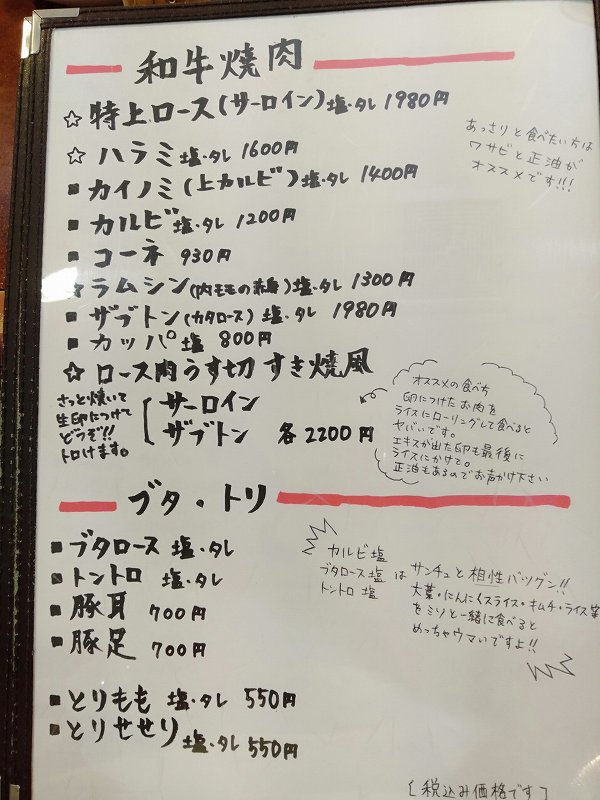 和牛焼肉
☆ 特上ロース(サーロイン)塩・タレ 1980円
☆ ハラミ 塩・タレ 1600円
■ カイノミ(上カルビ)塩・タレ 1400円
■ カルビ 塩・タレ 1200円
■ コーネ 930円
☆ ラムシン(内モモの赤身)塩・タレ 1300円
■ ザブトン(カタロース)塩・タレ 1980円
■ カッパ 塩 800円
☆ ロース肉うす切 すき焼風
サーロイン
ザブトン 各2200円
さっと焼いて
生卵につけて
どうぞ!!
トロけます。
あっさりと食べたい方は
ワサビと正油が
オススメです!!!
オススメの食べ方
卵につけたお肉を
ライスにローリングして食べると
ヤバいです。
エキスが出た卵も最後に
ライスにかけて。
正油もあるのでお声かけ下さい
ブタ・トリ
■ ブタロース 塩・タレ
■ トントロ 塩・タレ
■ 豚耳 700円
■ 豚足 700円
■ とりもも 塩・タレ 550円
■ とりせせり 塩・タレ 550円
カルビ塩
ブタロース塩 は サンチュと相性バツグン!!
トントロ 塩
大葉・にんにくスライス・キムチ・ライス
をミソと一緒に食べると
めっちゃウマいですよ!!
[税込み価格です]